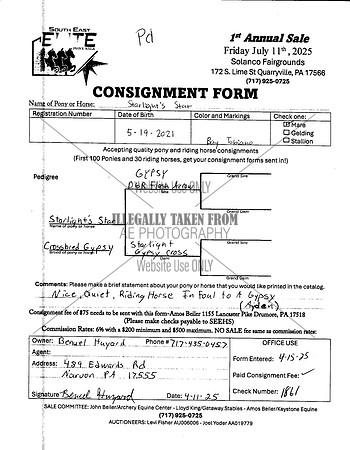 South East
ELITE
PONY SALE
Pd
1st Annual Sale
Friday July 11th, 2025
Solanco Fairgrounds
172 S. Lime St Quarryville, PA 17566
(717) 925-0725
CONSIGNMENT FORM
Name of Pony or Horse: Starlight's Star
Registration Number Date of Birth Color and Markings Check one:
Mare
5-19-2021 Bay Tobiano Gelding
Stallion
Accepting quality pony and riding horse consignments
(First 100 Ponies and 30 riding horses, get your consignment forms sent in!)
Pedigree
GYPSY
DER Flash
Website Use ONLY
Grand Sire
Grand Dam
Starlight's Star
Name of pony or horse
ILLEGALLY TAKEN FROM
AE PHOTOGRAPHY
Crossbred Gypsy
Breed of pony or horse
Starlight
Gypsy cross
Grand Sire
Website Use ONLY
Grand Dam
Comments: Please make a brief statement about your pony or horse that you would like printed in the catalog.
Nice, Quiet, Riding Horse In Foul to A Gypsy
(Ayden)
Consignment fee of $75 needs to be sent with this form-Amos Beiler 1155 Lancaster Pike Drumore, PA,17518
(Please make checks payable to SEEHS)
Commission Rates: 6% with a $200 minimum and $500 maximum. NO SALE fee same as commission rates:
Owner: Benuel Huyard Phone # 717-435-0457
OFFICE USE
Agent:
Form Entered: 4-15-25
Address: 489 Edwards Rd
Narvon PA 17555
Paid Consignment Fee:
Signature Benuel Huyard Date: 4-11-25
Check Number: 1861
SALE COMMITTEE: John Beiler/Archery Equine Center - Lloyd King/Getaway Stables - Amos Beiler/Keystone Equine
(717) 925-0725
AUCTIONEERS: Levi Fisher AU006006 - Joel Yoder AA019779